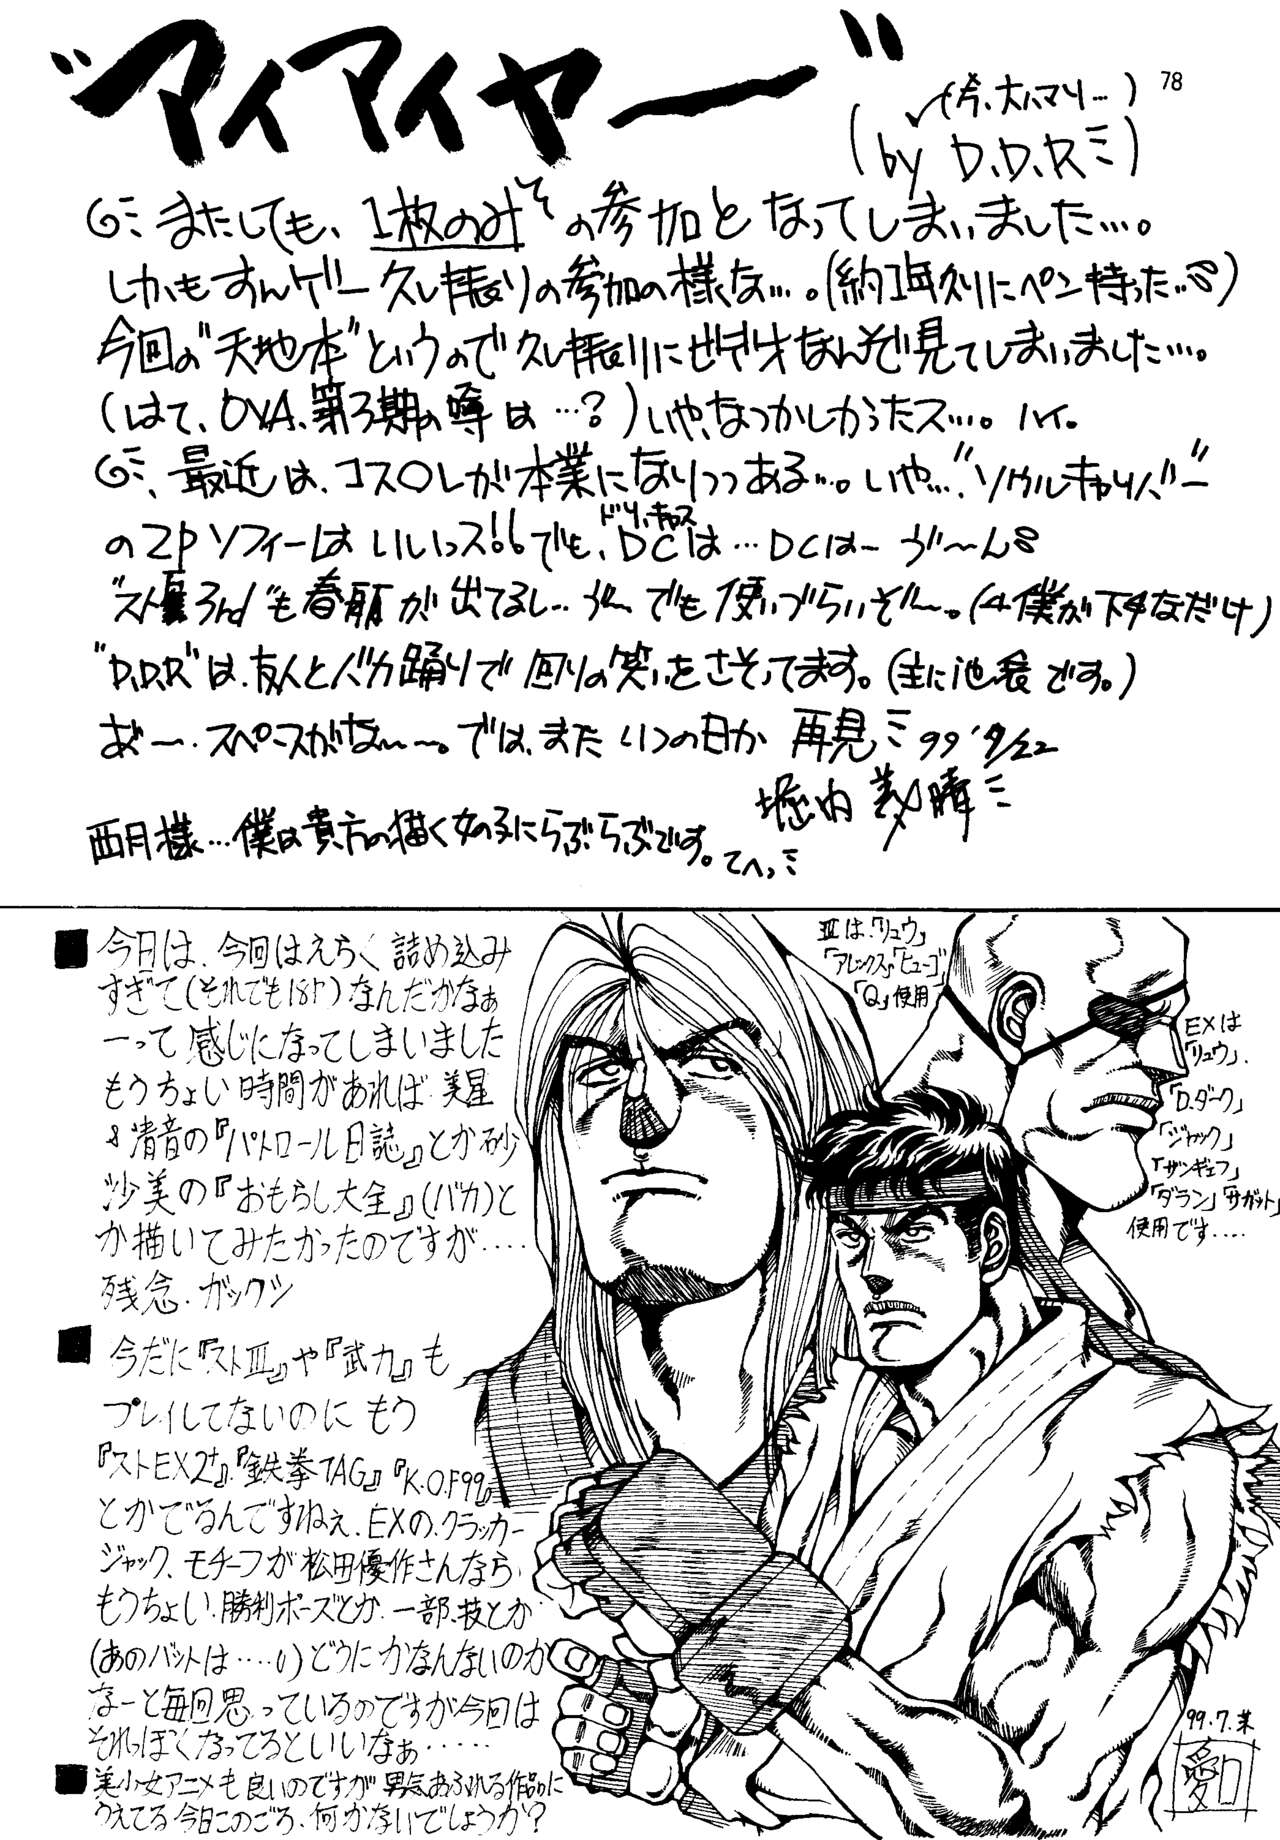 "マイマイヤー"
78
(今、大ハマリ…)
(by D.D.R)
またしても、1枚のみの参加となってしまいました…。
しかもすんげー久し振りの参加の様な…。(約1年久りにペン持った…)
今回の"天地本"というので久し振りにビデオなんぞ見てしまいました…。
(はて、OVA、第3期の噂は…?)いや、なつかしかったス…。ハイ。
最近は、コス○レが本業になりつつある…。いや…"ソウルキャリバー"
の2Pソフィーはいいっス!!でも、DCは…DCはーゔ〜ん
ドリキャス
"ストⅢ3rd"も春麗が出てるし…ゔ〜でも使いづらいぞ〜。(僕が下手なだけ)
"D.D.R"は、友人とバカ踊りで回りの笑いをさそってます。(主に池袋です。)
あ〜、スペースがな〜〜。では、またいつの日か 再見 99'9/22
堀内 義晴
西月様…僕は貴方の描く女の子にらぶらぶです。てへっ
■今日は、今回はえらく詰め込み
すぎて(それでも18P)なんだかなぁ
ーって感じになってしまいました
もうちょい時間があれば美星
&清音の『パトロール日誌』とか砂
沙美の『おもらし大全』(バカ)と
か描いてみたかったのですが‥‥
残念.ガックシ
■今だに『ストⅢ』や『武力』も
プレイしてないのにもう
『ストEX2+』『鉄拳TAG』『K.O.F99』
とかでるんですねぇ.EXのクラッカー
ジャック、モチーフが松田優作さんなら
もうちょい.勝利ポーズとか.一部.技とか
(あのバットは‥‥)どうにかなんないのか
なーと毎回思っているのですが今回は
それっぽくなってるといいなぁ‥‥‥
■美少女アニメも良いのですが男気あふれる作品に
うえてる今日このごろ、何かないでしょうか?
Ⅲは「リュウ」
「アレックス」「ヒューゴ」
「Q」使用
EXは
「リュウ」.
「D.ダーク」
「ジャック」
「ザンギュフ」
「ダラン」「サガット」
使用です‥‥
99.7.末